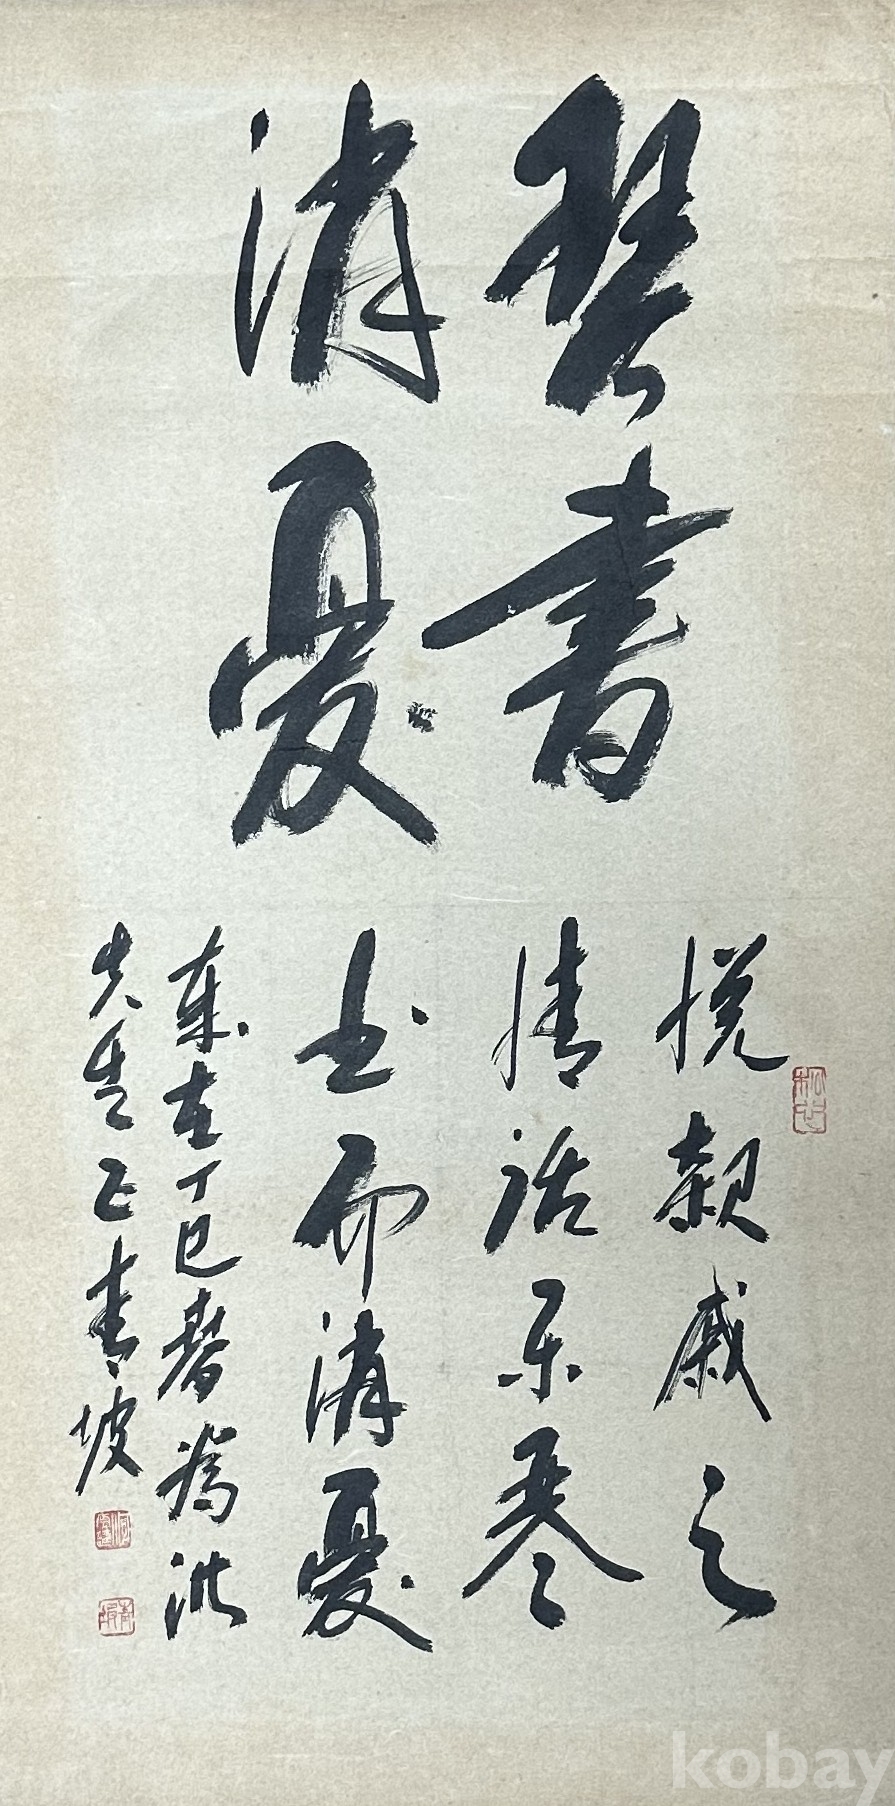 琴書
消憂
悅親戚之
情話樂琴
書而消憂
東左丁巳春為
先生正 青坡
kobay